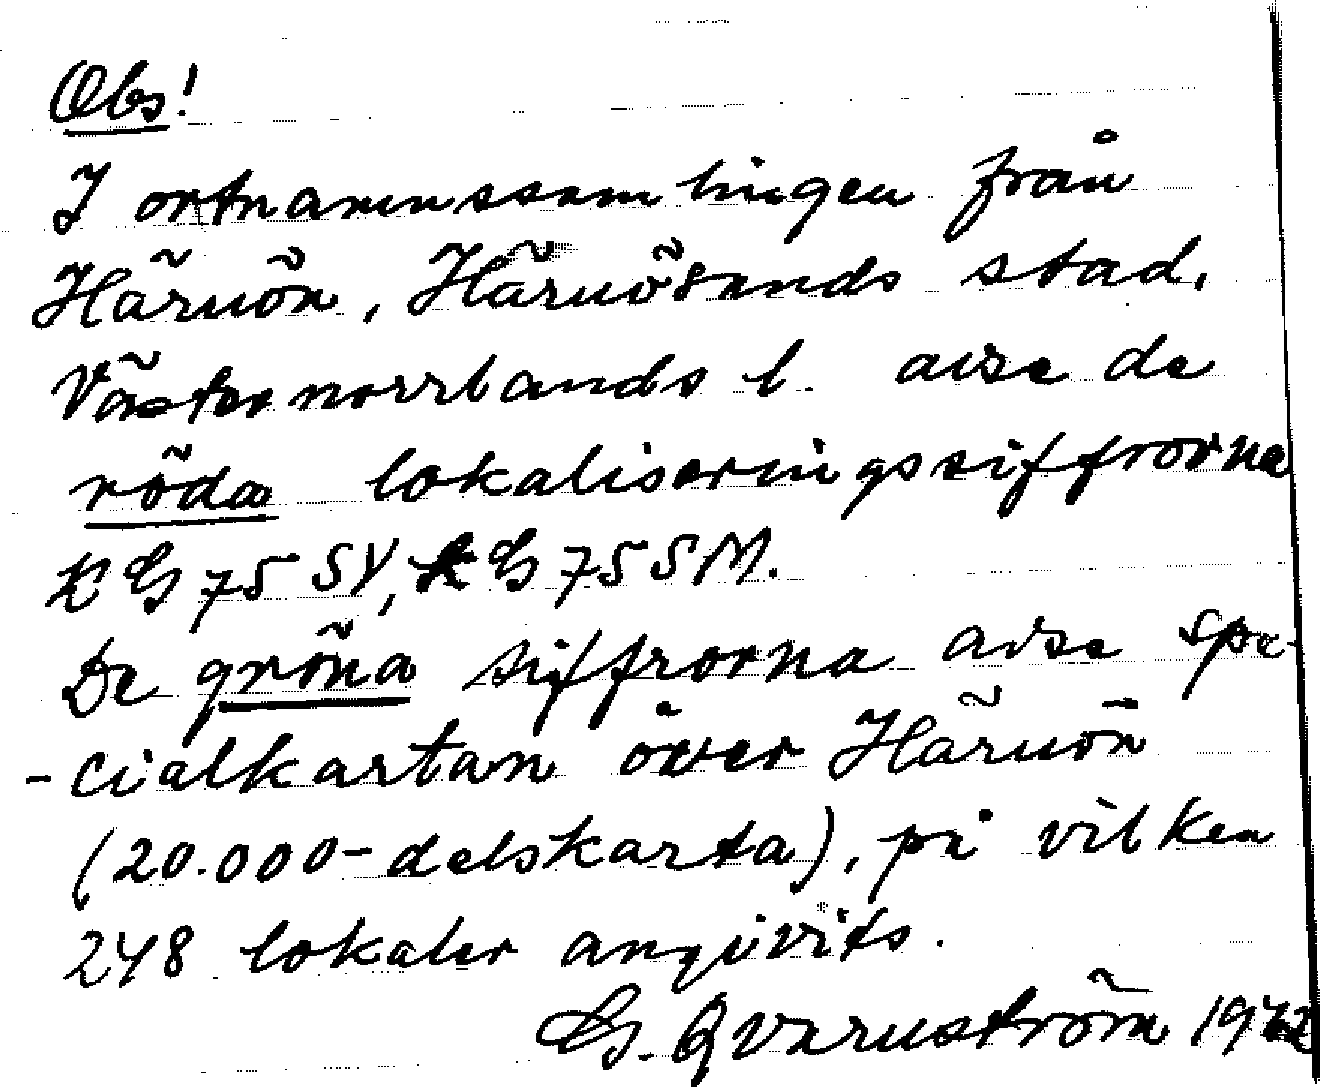 Obs!
I ortnamnssamlingen från
Härnön, Härnösands stad,
Västernorrlands l. avse de
röda lokaliseringssiffrorna
KG 75 SV, KG 75 SM.
De gröna siffrorna avse spe-
-cialkartan över Härnön
(20.000-delskarta), på vilken
248 lokaler angivits.
G. Qvarnström